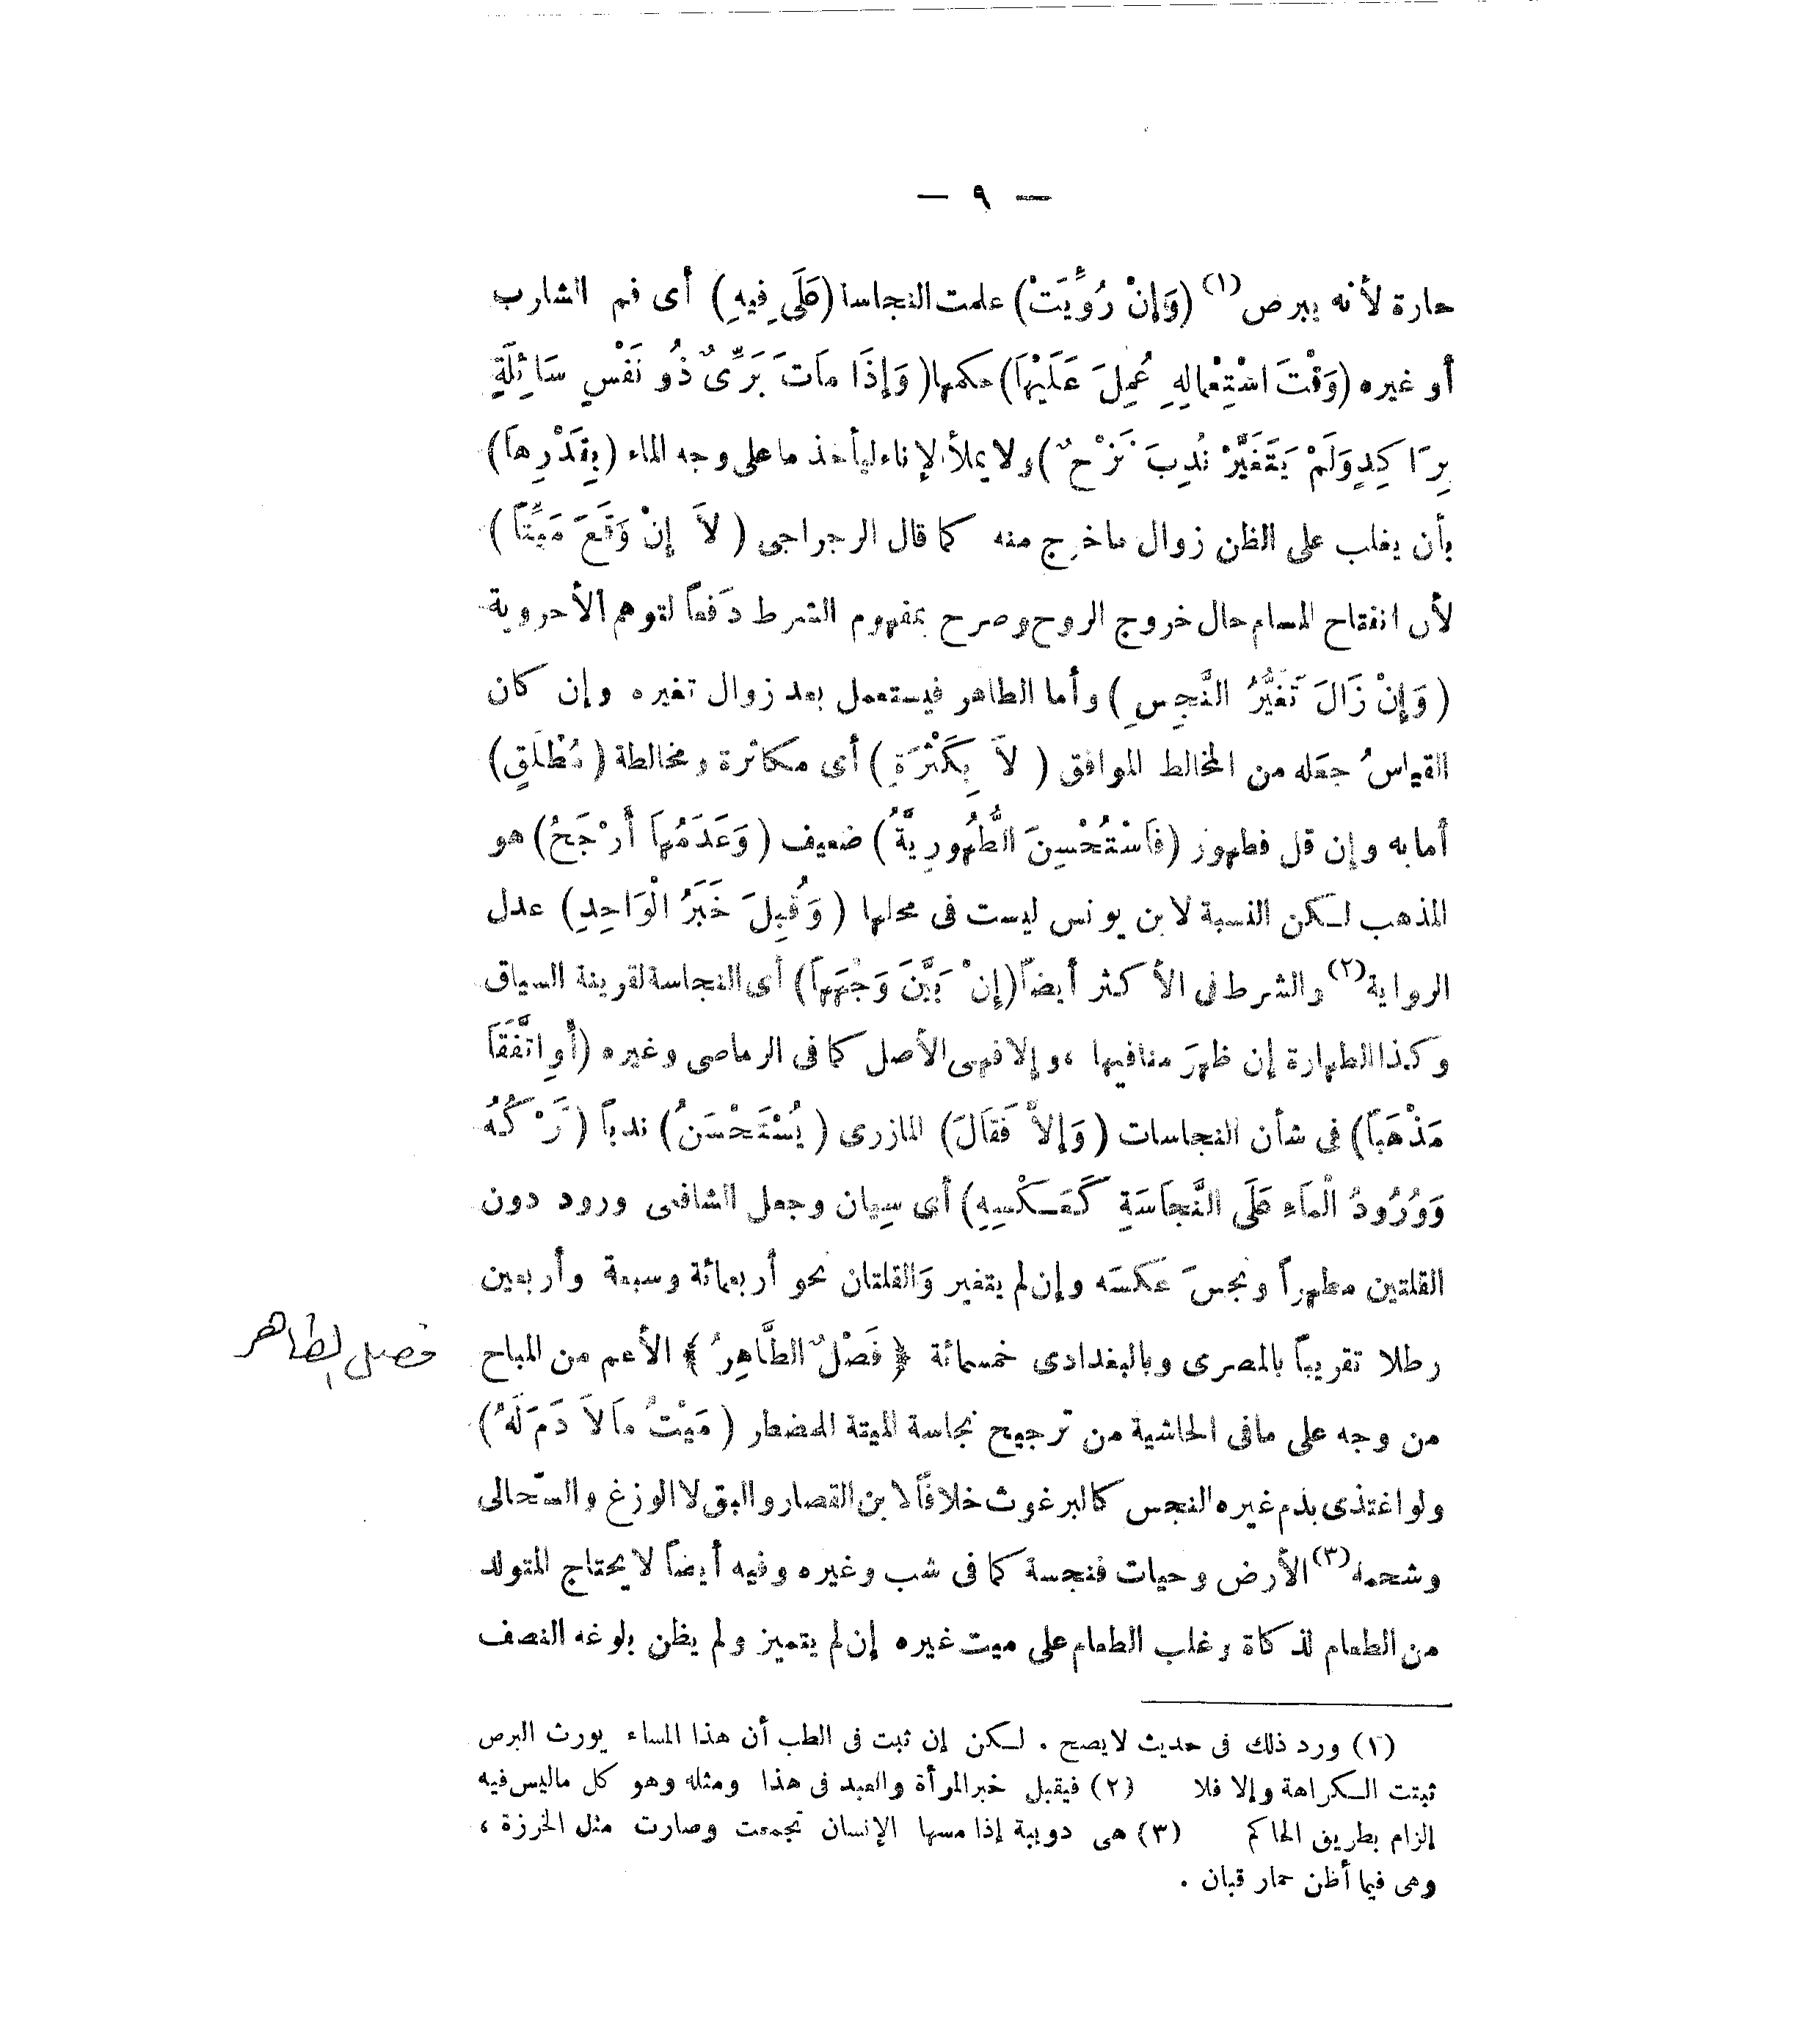 — ٩ —
حارة لأنه يبرص (١) (وَإِنْ رُؤِيَتْ) علمت النجاسة (عَلَى فِيهِ) أى فم الشارب
أو غيره (وَقْتَ اسْتِعْمالِهِ عُمِلَ عَلَيْهَا) حكمها (وَإِذَا مَاتَ بَرِّىٌّ ذُو نَفْسٍ سَائِلَةٍ
بِرَاكِدٍ وَلَمْ يَتَغَيَّرْ نُدِبَ نَزْحٌ) ولا يملأ الإناء ليأخذ ما على وجه الماء (بِقَدْرِهَا)
بأن يغلب على الظن زوال ما خرج منه كما قال الرجراجى (لاَ إِنْ وَقَعَ مَيِّتاً)
لأن انفتاح المسام حال خروج الروح وصرح بمفهوم الشرط دَفعاً لتوهم الأحروية
(وَإِنْ زَالَ تَغَيُّرُ النَّجِسِ) وأما الطاهر فيستعمل بعد زوال تغيره وإن كان
القياسُ جعَله من المخالط الموافق (لاَ بِكَثْرَةِ) أى مكاثرة ومخالطة (مُطْلَقٍ)
أما به وإن قل فطهور (فَاسْتُحْسِنَ الطَّهُورِيَّةُ) ضعيف (وَعَدَمُهَا أَرْجَحُ) هو
المذهب لكن النسبة لابن يونس ليست فى محلها (وَقُبِلَ خَبَرُ الْوَاحِدِ) عدل
الرواية (٢) والشرط فى الأكثر أيضاً (إِنْ بَيَّنَ وَجْهَهَا) أى النجاسة لقرينة السياق
وكذا الطهارة إن ظهرَ منافيها ، وإلا فهى الأصل كما فى الرماصى وغيره (أَوِ اتَّفَقَا
مَذْهَباً) فى شأن النجاسات (وَإِلاَّ فَقَالَ) المازرى (يُسْتَحْسَنُ) ندباً (تَرْكُهُ
وَوُرُودُ الْمَاءِ عَلَى النَّجَاسَةِ كَعَكْسِهِ) أى سِيان وجعل الشافعى ورود دون
القلتين مطهراً ونجسَ عكسَه وإن لم يتغير وَالقلتان نحو أربعمائة وسبعة وأربعين
رطلا تقريباً بالمصرى وبالبغدادى خمسمائة ﴿ فَصْلٌ الطَّاهِرُ ﴾ الأعم من المباح
فصل الطاهر
من وجه على مافى الحاشية من ترجيح نجاسة الميتة للمضطر (مَيْتُ مَا لاَ دَمَ لَهُ)
ولو اغتذى بدم غيره النجس كالبرغوث خلافاً لابن القصار والبق لا الوزغ والسّحالى
وشحمة (٣) الأرض وحيات فنجسة كما فى شب وغيره وفيه أيضاً لا يحتاج المتولد
من الطعام لذكاة وغلب الطعام على ميت غيره إن لم يتميز ولم يظن بلوغه النصف
(١) ورد ذلك فى حديث لايصح . لكن إن ثبت فى الطب أن هذا الماء يورث البرص
ثبتت الكراهة وإلا فلا (٢) فيقبل خبر المرأة والعبد فى هذا ومثله وهو كل ماليس فيه
إلزام بطريق الحاكم (٣) هى دويبة إذا مسها الإنسان تجمعت وصارت مثل الخرزة ،
وهى فيما أظن حمار قبان .